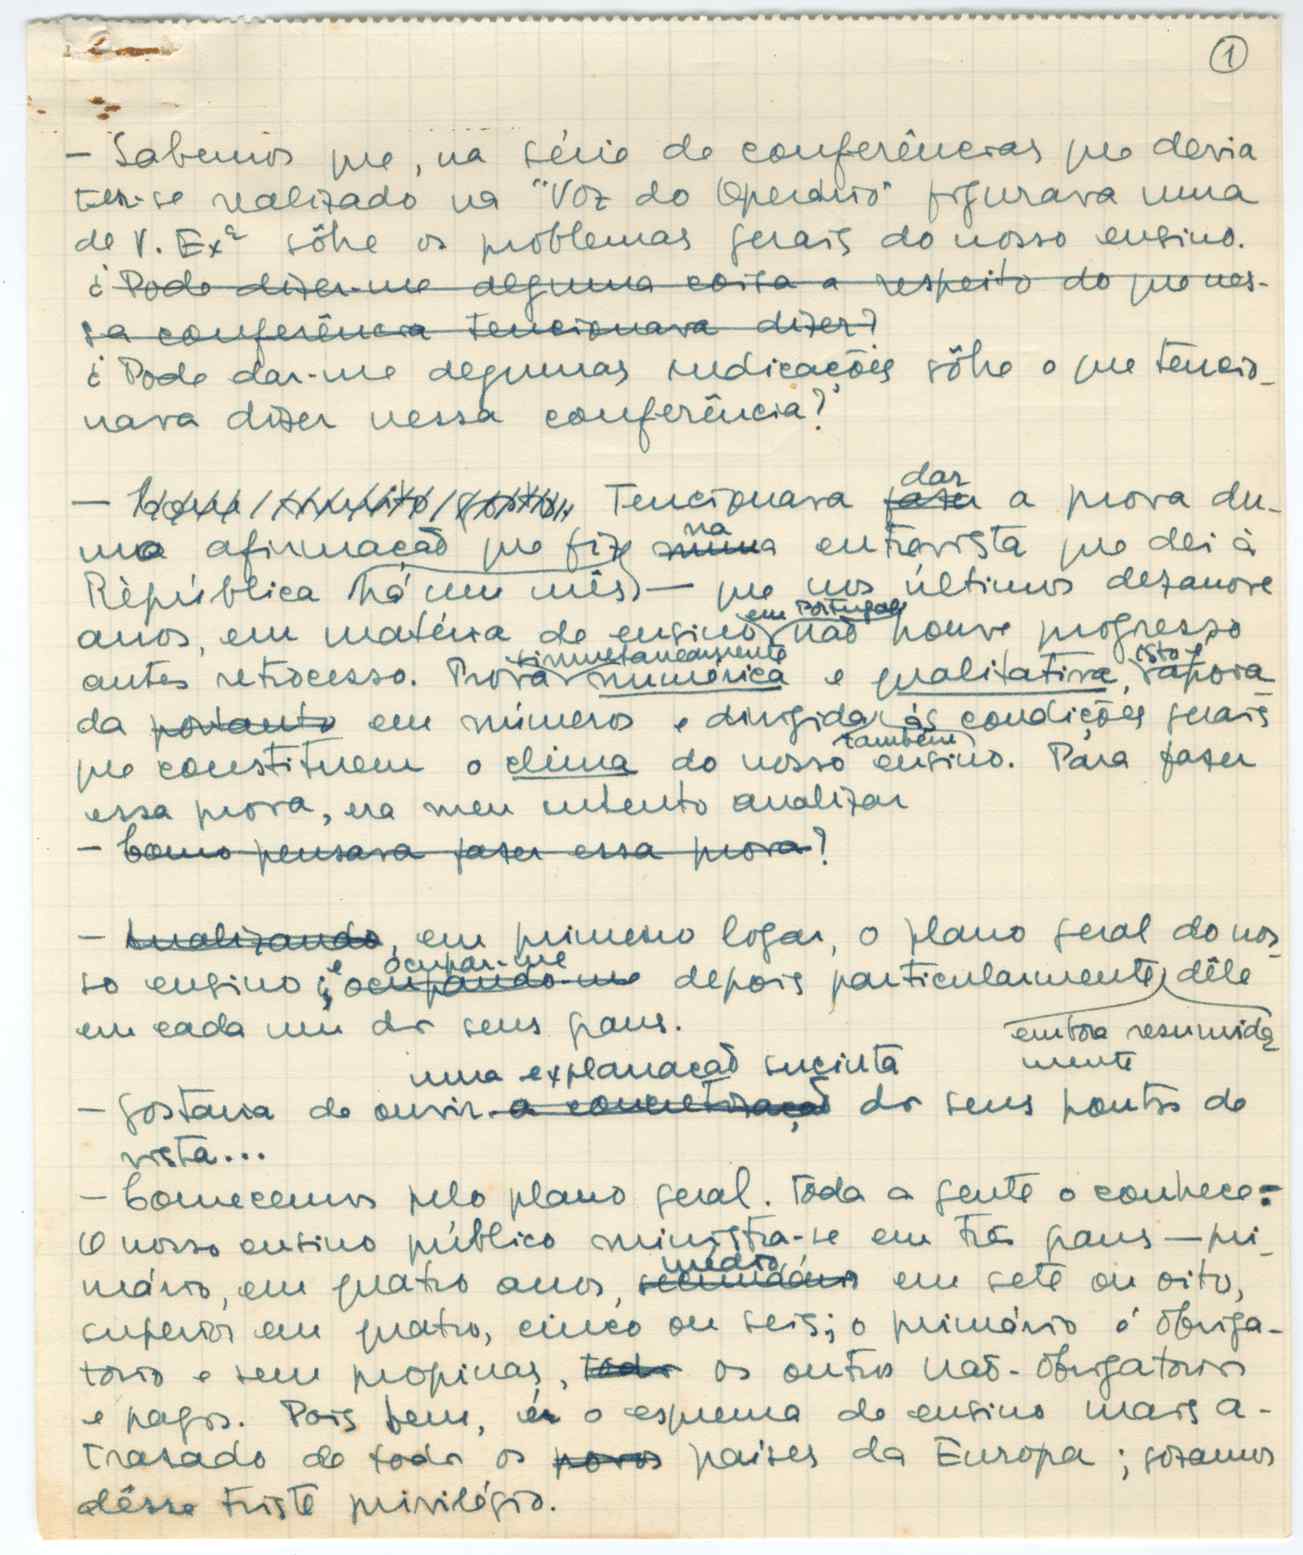 1
— Sabemos que, na série de conferências que devia
ter-se realizado na "Voz do Operário" figurava uma
de V. Exª sôbre os problemas gerais do nosso ensino.
¿ Pode dizer-me alguma coisa a respeito do que nes-
sa conferência tencionava dizer?
¿ Pode dar-me algumas indicações sôbre o que tencio-
nava dizer nessa conferência?
dar
— Tencionava fazer a prova du-
na
ma afirmação que fiz numa entrevista que dei à
República (há um mês) — que nos últimos dezanove
em Portugal
anos, em matéria de ensino não houve progresso
simultaneamente isto é,
antes retrocesso. Prova numérica e qualitativa, apoia-
da portanto em números e dirigida às condições gerais
também
que constituem o clima do nosso ensino. Para fazer
essa prova, era meu intento analizar
— Como pensava fazer essa prova?
— Analizando, em primeiro logar, o plano geral do nos-
e ocupar-me
so ensino; ocupando-me depois particularmente, dêle
em cada um dos seus graus.
embora resumida-
mente
uma explanação sucinta
— Gostaria de ouvir a concretização dos seus pontos de
vista...
— Comecemos pelo plano geral. Toda a gente o conhece:
O nosso ensino público ministra-se em três graus — pri-
médio,
mário, em quatro anos, secundário em sete ou oito,
superior em quatro, cinco ou seis; o primário é obriga-
tório e sem propinas, todos os outros não-obrigatórios
e pagos. Pois bem, é o esquema de ensino mais a-
trasado de todos os povos países da Europa; gozamos
dêsse triste privilégio.